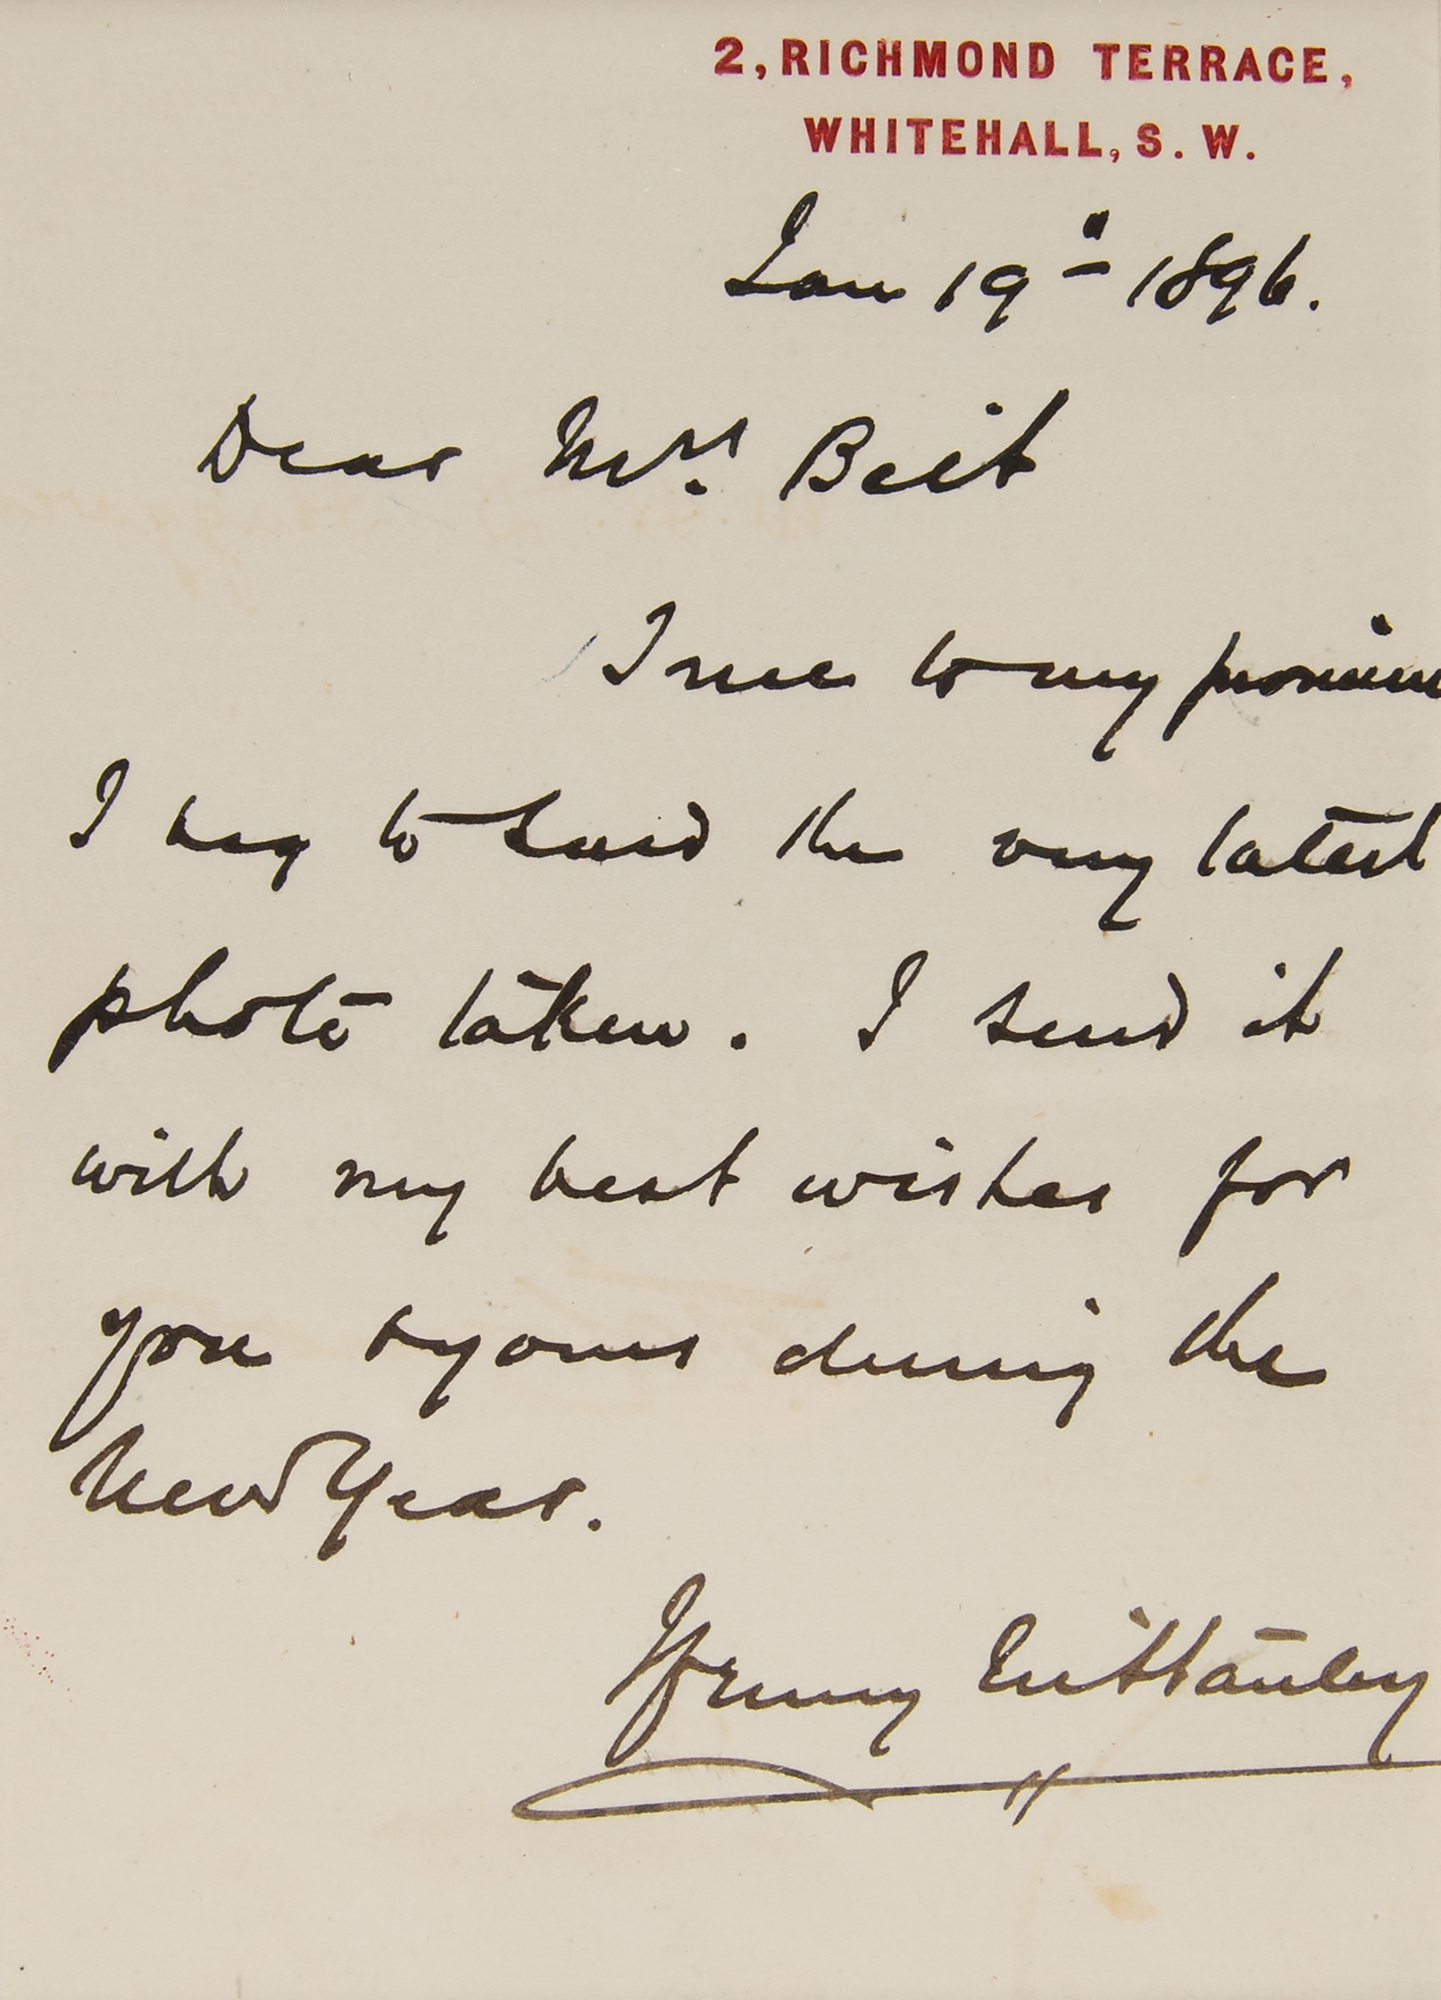 2, RICHMOND TERRACE,
WHITEHALL, S. W.
Jan 19th 1896.
Dear Mrs. Beit
True to my promise
I beg to send the very latest
photo taken. I send it
with my best wishes for
you & yours during the
New Year.
Henry M Stanley